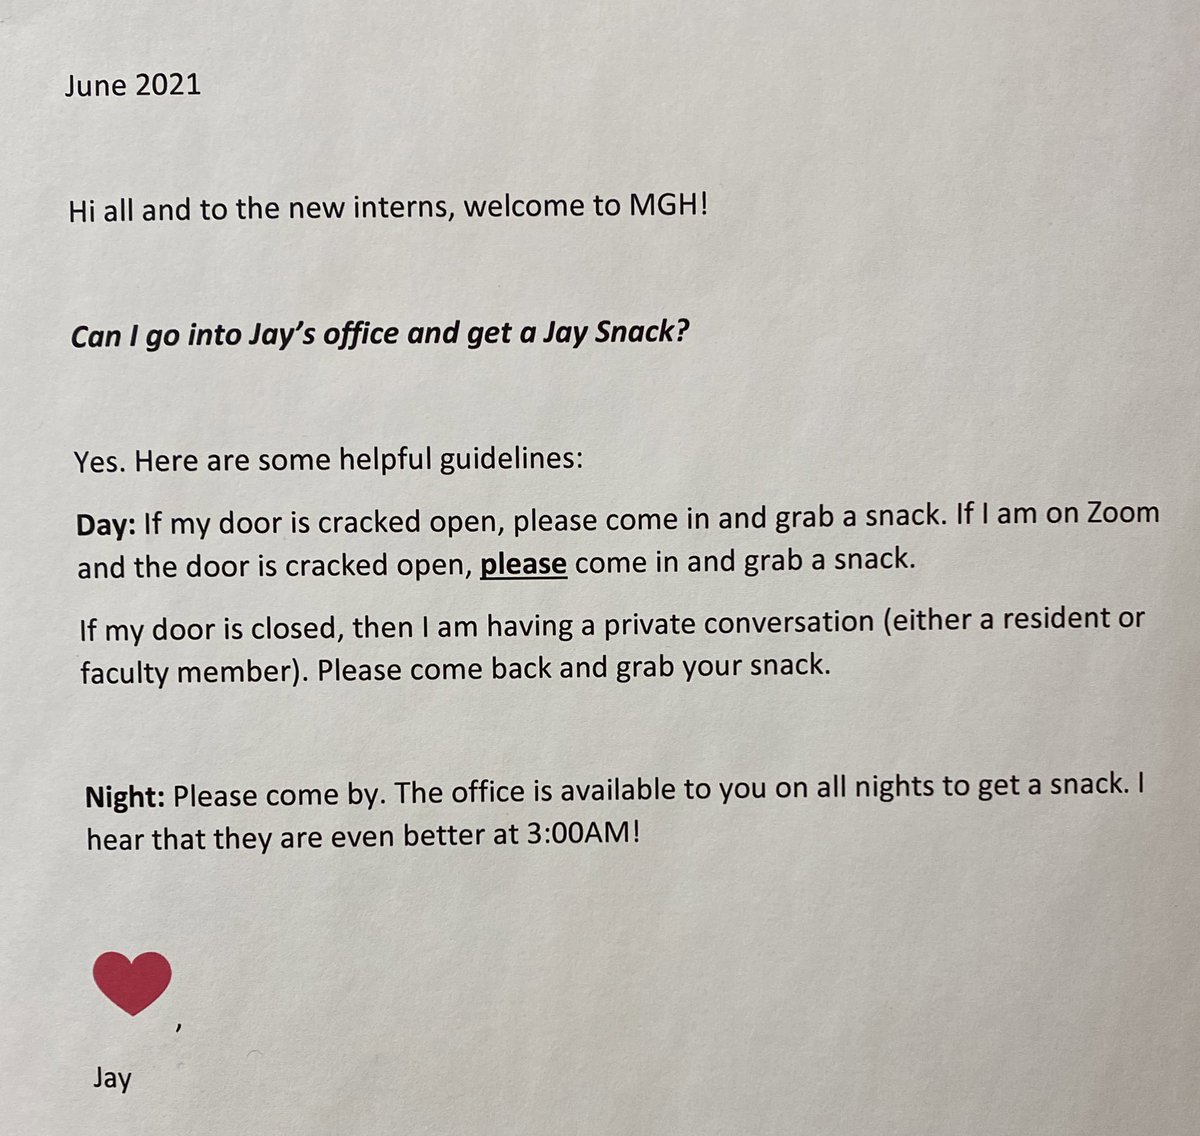 June 2021
Hi all and to the new interns, welcome to MGH!
Can I go into Jay’s office and get a Jay Snack?
Yes. Here are some helpful guidelines:
Day: If my door is cracked open, please come in and grab a snack. If I am on Zoom
and the door is cracked open, please come in and grab a snack.
If my door is closed, then I am having a private conversation (either a resident or
faculty member). Please come back and grab your snack.
Night: Please come by. The office is available to you on all nights to get a snack. I
hear that they are even better at 3:00AM!
,
Jay